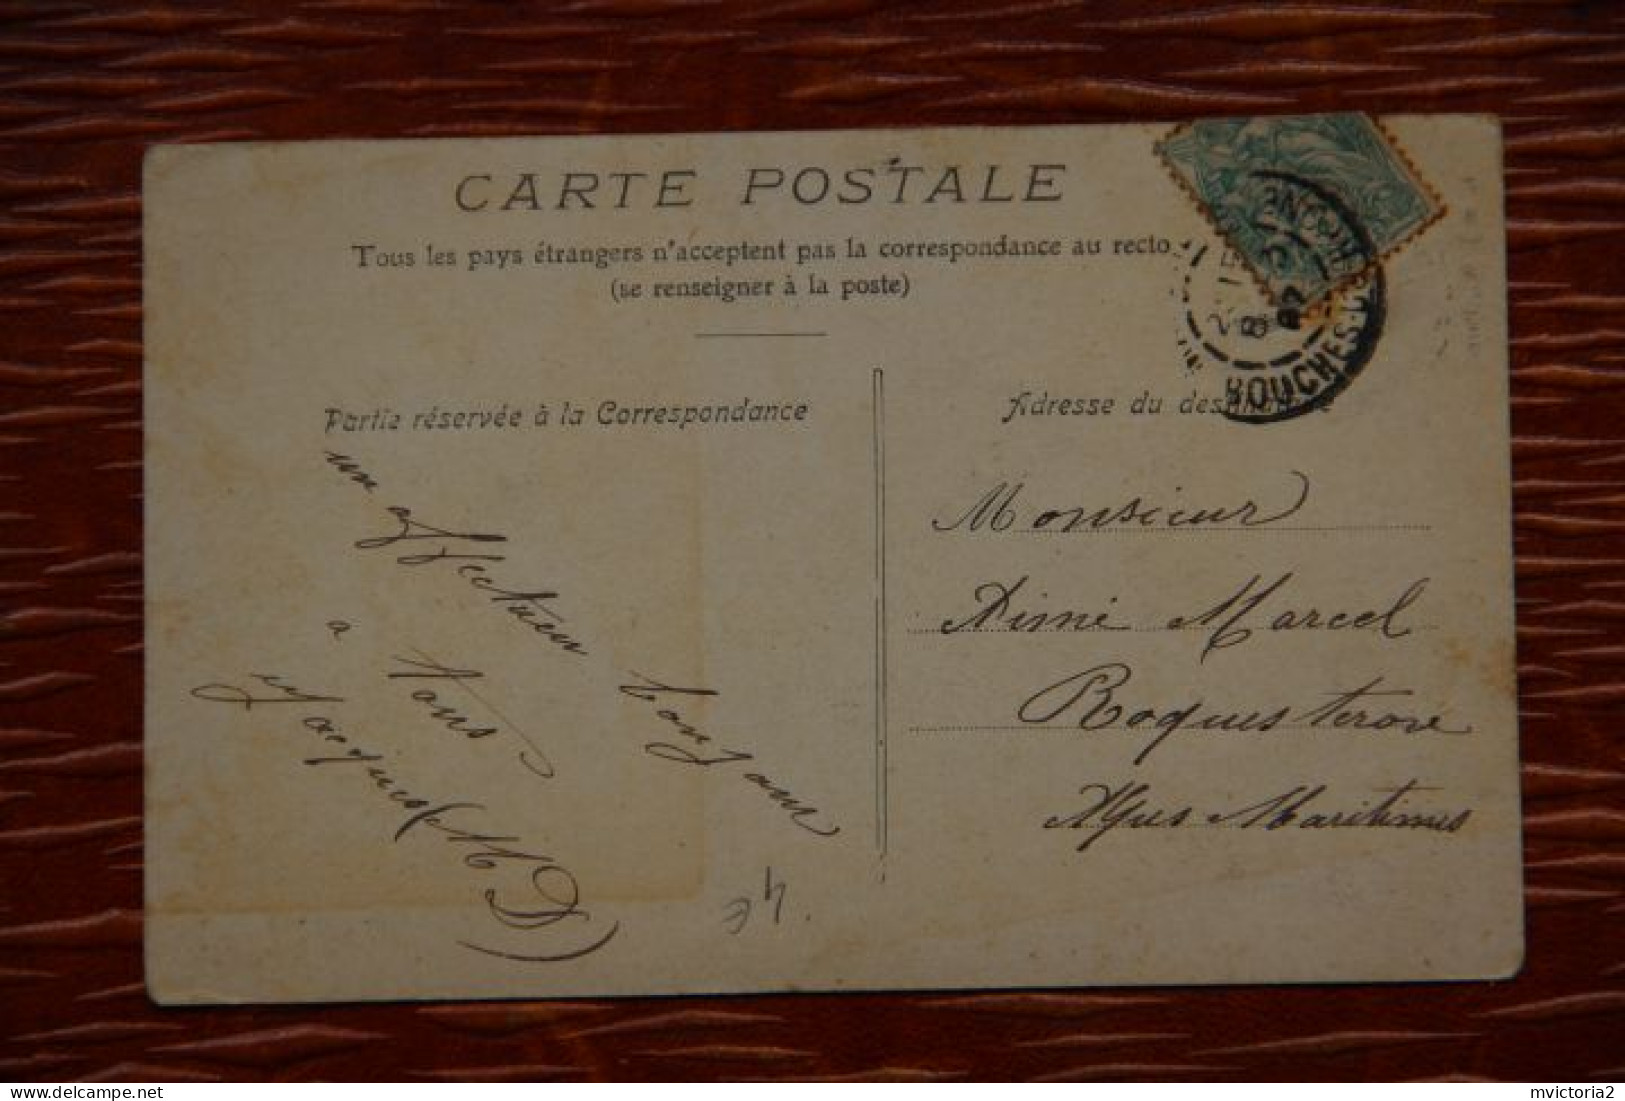 CARTE POSTALE
Tous les pays étrangers n'acceptent pas la correspondance au recto
(se renseigner à la poste)
Partie réservée à la Correspondance
Adresse du
BOUCHES-DU-RHONE
8
07
un affectueu
bonjour
a
tous
Jacques
Monsieur
Aimé Marcel
Roquesteron
Alpes Maritimes
4 €
mvictoria2